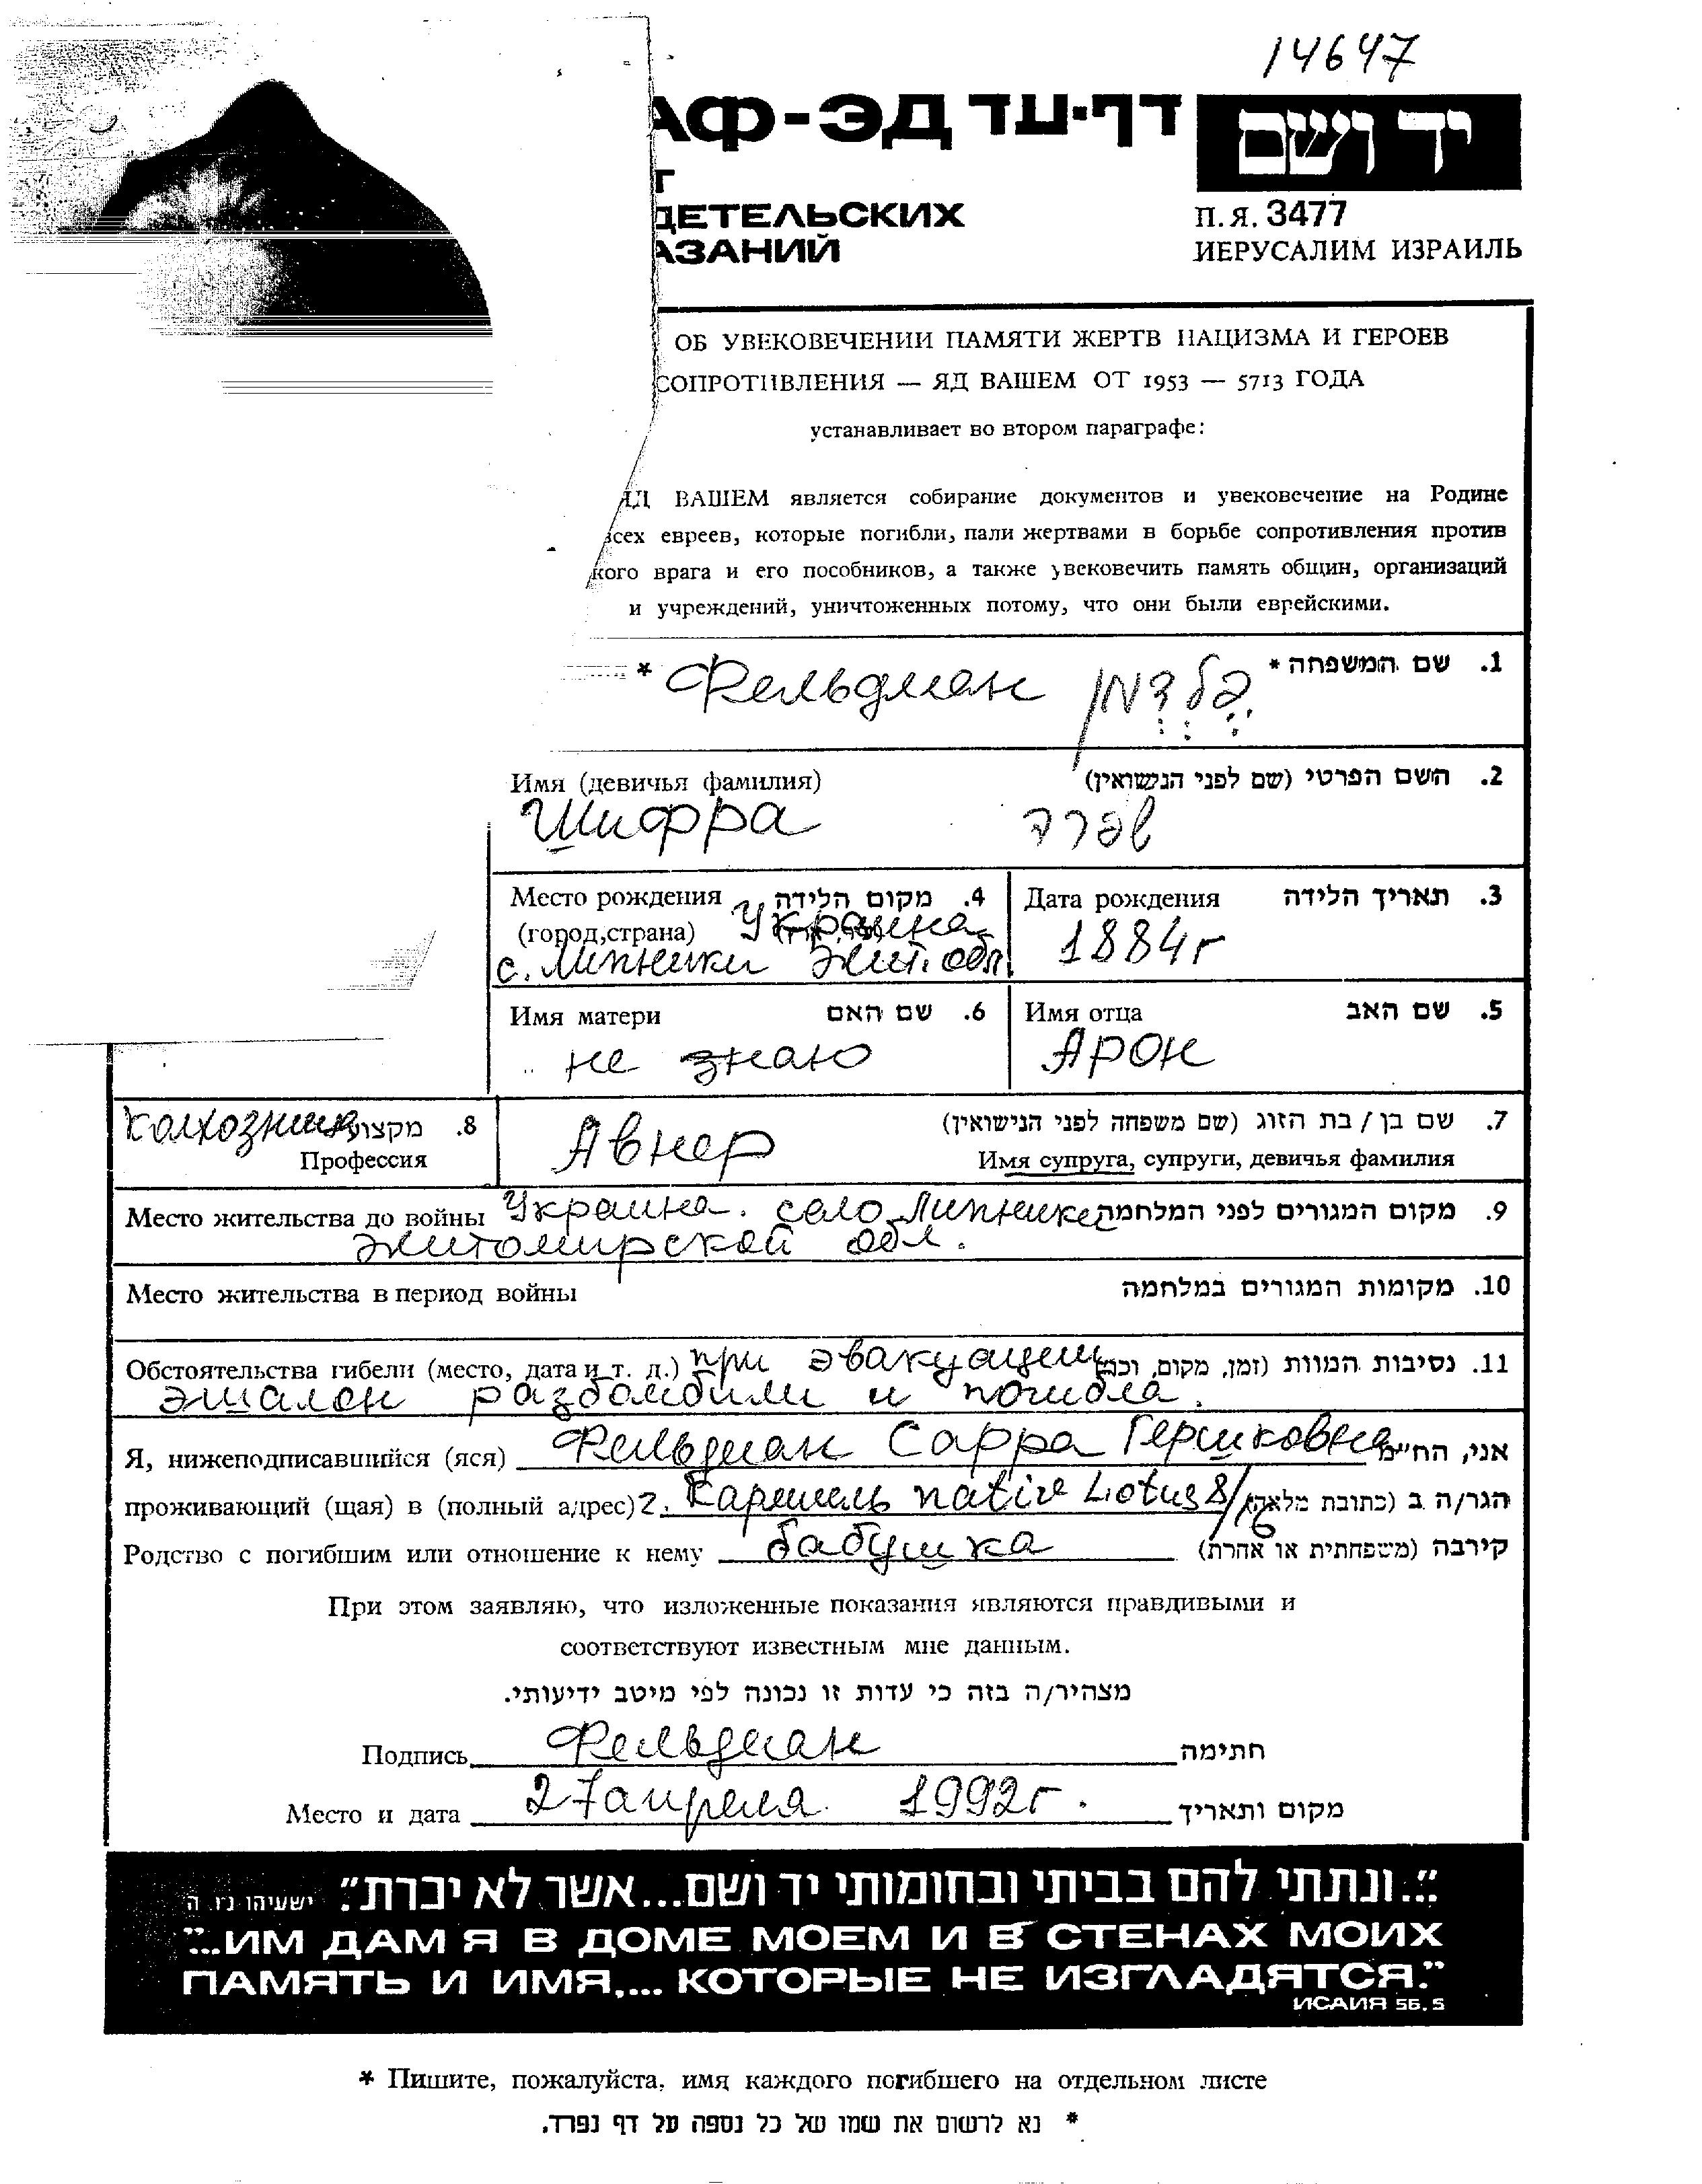 14647
АФ-ЭД דף-עד
יד ושם
ДЕТЕЛЬСКИХ
АЗАНИЙ
П.Я. 3477
ИЕРУСАЛИМ ИЗРАИЛЬ
ОБ УВЕКОВЕЧЕНИИ ПАМЯТИ ЖЕРТВ НАЦИЗМА И ГЕРОЕВ
СОПРОТИВЛЕНИЯ — ЯД ВАШЕМ ОТ 1953 — 5713 ГОДА
устанавливает во втором параграфе:
ЯД ВАШЕМ является собирание документов и увековечение на Родине
всех евреев, которые погибли, пали жертвами в борьбе сопротивления против
кого врага и его пособников, а также увековечить память общин, организаций
и учреждений, уничтоженных потому, что они были еврейскими.
1. שם המשפחה *
* Фельдман פלדמן
2. השם הפרטי (שם לפני הנישואין)
Имя (девичья фамилия)
Шифра שפרה
3. תאריך הלידה Дата рождения
1884г
4. מקום הלידה Место рождения
(город,страна) Украина
с. Липники Жит. обл.
5. שם האב Имя отца
Арон
6. שם האם Имя матери
не знаю
7. שם בן / בת הזוג (שם משפחה לפני הנישואין)
Имя супруга, супруги, девичья фамилия
Авнер
8. מקצוע Колхозник
Профессия
9. מקום המגורים לפני המלחמה Место жительства до войны Украина. село Липники
Житомирской обл.
10. מקומות המגורים במלחמה Место жительства в период войны
11. נסיבות המוות (זמן, מקום, וכו') Обстоятельства гибели (место, дата и т. д.) при эвакуации
эшалон разбомбили и погибла.
Я, нижеподписавшийся (яся) Фельдман Сарра Гершковна אני, הח"מ
проживающий (щая) в (полный адрес) г. Кармиель nativ Lotus 8/6 הגר/ה ב (כתובת מלאה)
Родство с погибшим или отношение к нему бабушка קירבה (משפחתית או אחרת)
При этом заявляю, что изложенные показания являются правдивыми и
соответствуют известным мне данным.
מצהיר/ה בזה כי עדות זו נכונה לפי מיטב ידיעותי.
Подпись Фельдман חתימה
Место и дата 27 апреля 1992г. מקום ותאריך
"...ונתתי להם בביתי ובחומותי יד ושם...אשר לא יכרת". ישעיהו נ"ו ה
"...ИМ ДАМ Я В ДОМЕ МОЕМ И В СТЕНАХ МОИХ
ПАМЯТЬ И ИМЯ,... КОТОРЫЕ НЕ ИЗГЛАДЯТСЯ."
ИСАИЯ 56.5
* Пишите, пожалуйста, имя каждого погибшего на отдельном листе
* נא לרשום את שמו של כל נספה על דף נפרד.